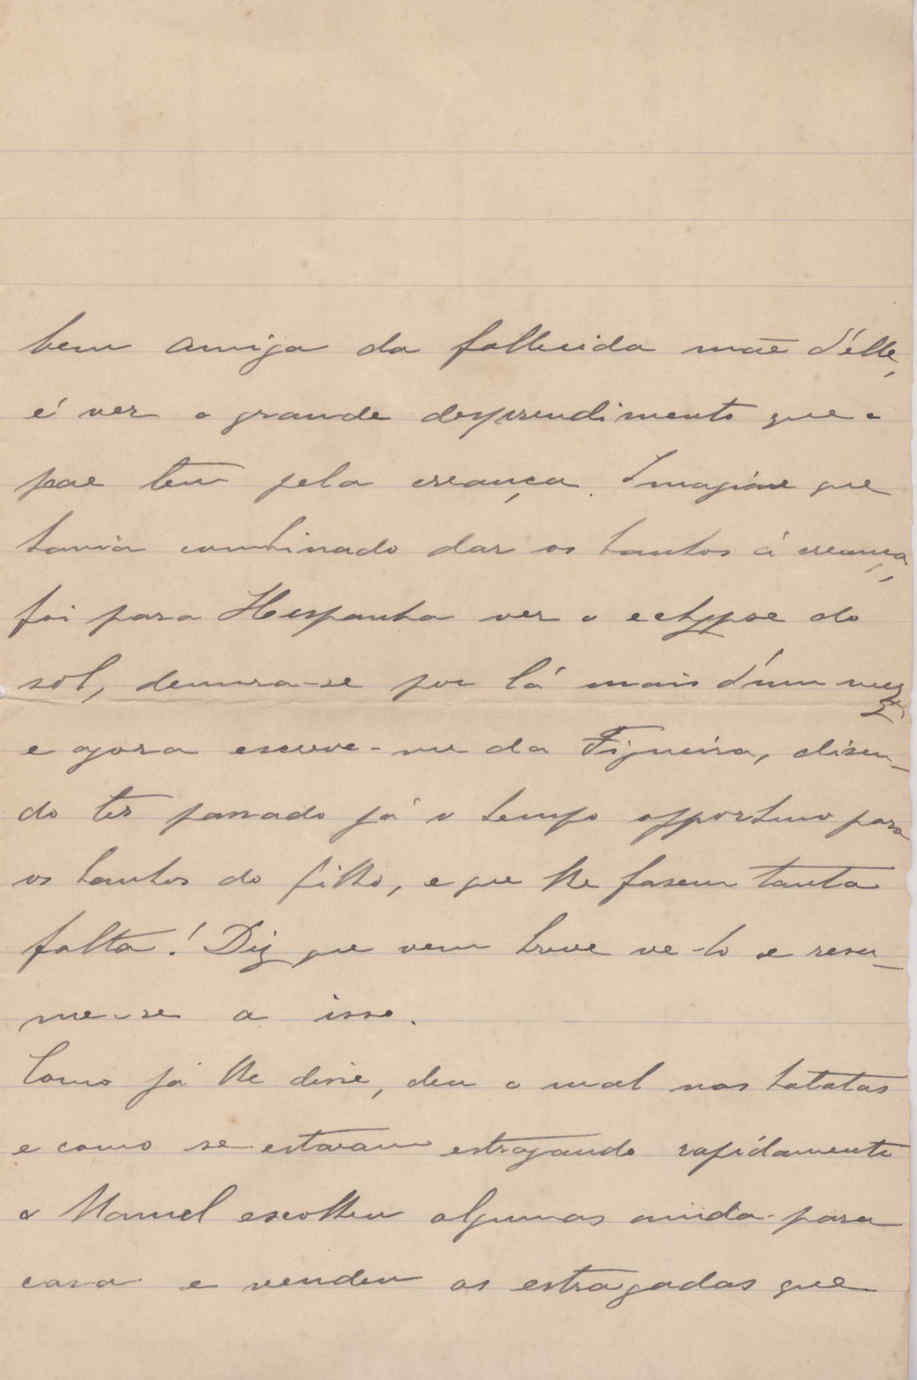 bem amiga da fallecida mãe d'élle,
é ver o grande desprendimento que o
pae tem pela creança. Imagine que
tania combinado dar os banhos á creança,
foi para Hespanha ver o eclypse do
sol, demora-se por lá mais d'um mez
e agora escreve-me da Figueira, disen-
do ter passado já o tempo opportuno para
os banhos do filho, e que lhe fasem tanta
falta! Diz que vem breve ve-lo e resu-
me-se a isso.
Como já lhe disse, deu o mal nas batatas
e como se estavam estragando rapidamente
o Manuel escolheu algumas ainda para
casa e vendeu as estragadas que